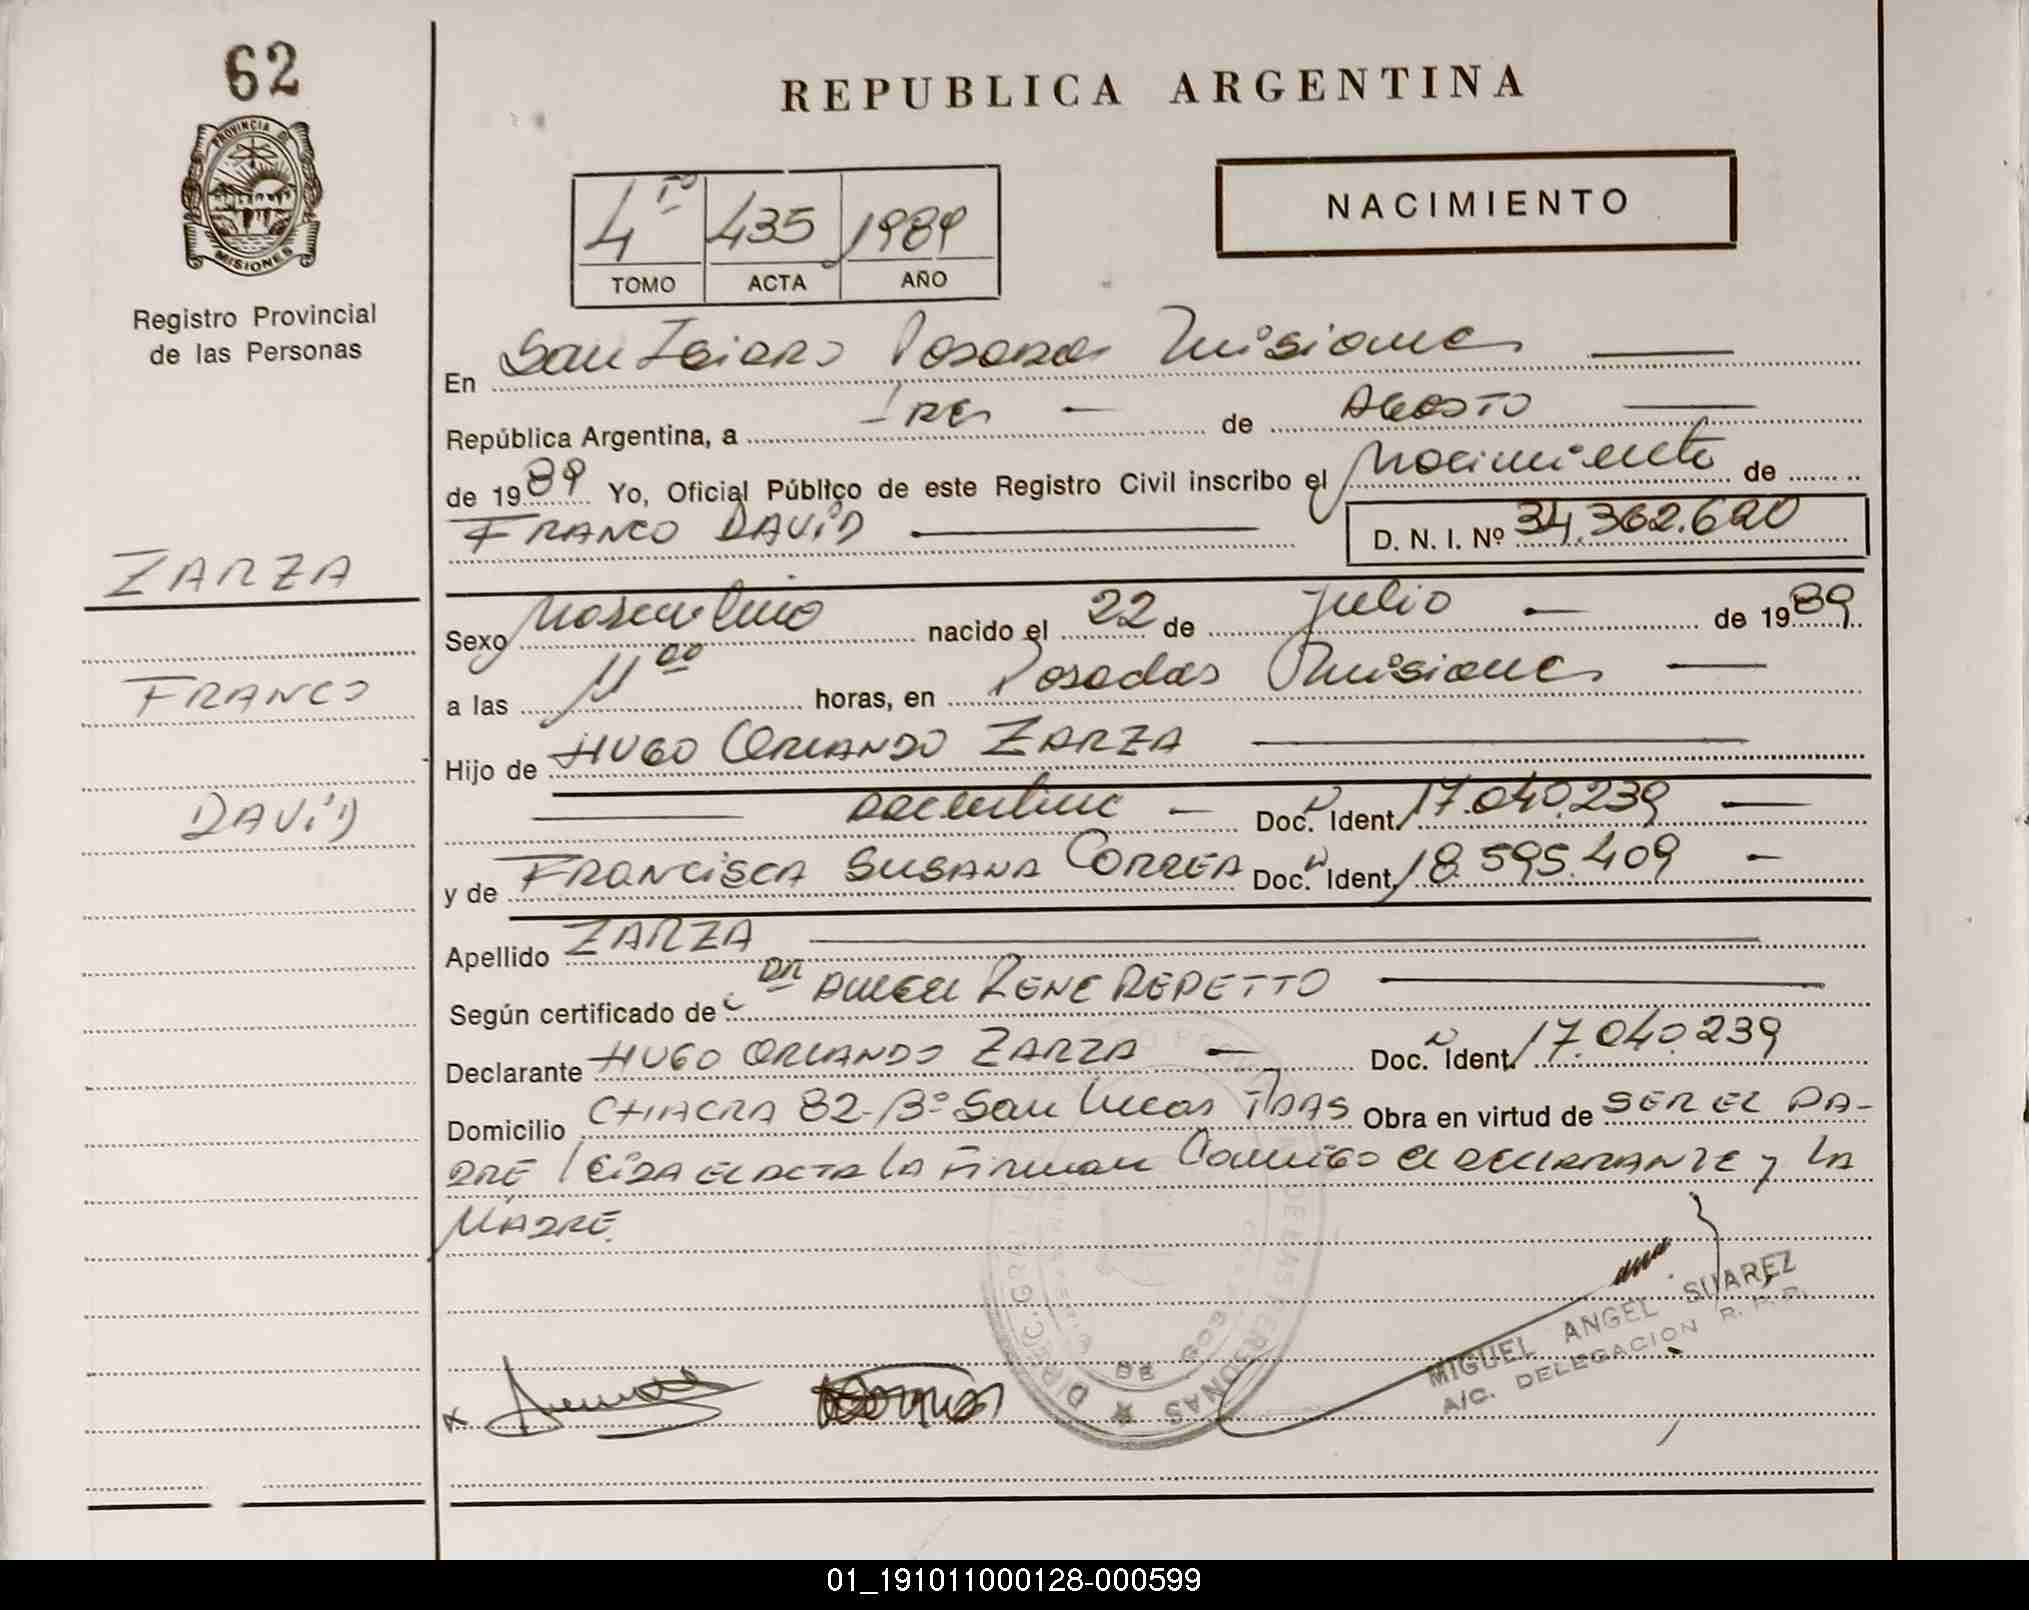 62
PROVINCIA DE
MISIONES
Registro Provincial
de las Personas
REPUBLICA ARGENTINA
NACIMIENTO
4to 435 1989
TOMO ACTA AÑO
En San Isidro Posadas Misiones
República Argentina, a Tres de Agosto
de 1989 Yo, Oficial Público de este Registro Civil inscribo el Nacimiento de
FRANCO DAVID D. N. I. Nº 34.362.620
ZARZA
FRANCO
DAVID
Sexo Masculino nacido el 22 de Julio de 1989
a las 11 00 horas, en Posadas Misiones
Hijo de HUGO ORLANDO ZARZA
Argentino Doc. N Ident. 17.040.239
y de FRANCISCA SUSANA CORREA Doc. N Ident. 18.595.409
Apellido ZARZA
Según certificado de DR RENE REPETTO
Declarante HUGO ORLANDO ZARZA Doc. N Ident. 17.040.239
Domicilio CHACRA 82-Bº San Lucas PDAS Obra en virtud de SER EL PA-
DRE LEIDA EL ACTA LA FIRMAN Conmigo el DECLARANTE y LA
MADRE.
MIGUEL ANGEL SUAREZ
A/C. DELEGACION R. P. P.
01_191011000128-000599